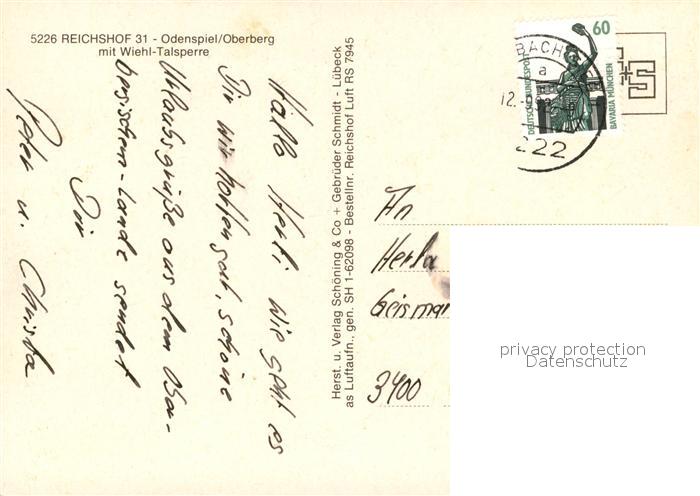 5226 REICHSHOF 31 - Odenspiel/Oberberg
mit Wiehl-Talsperre
Hallo Herli, wie geht es
Dir wir hoffen gut, schöne
Urlaubsgrüße aus dem
Land sendet
Dir
Peter u. Christa
Herst. u. Verlag Schöning & Co + Gebrüder Schmidt - Lübeck
as Luftaufn., gen. SH 1-62098 - Bestellnr. Reichshof Luft RS 7945
60
DEUTSCHE BUNDESPOST
BAVARIA MÜNCHEN
BACH
a
12.
222
An
Herla
Geismar
3400
privacy protection
Datenschutz